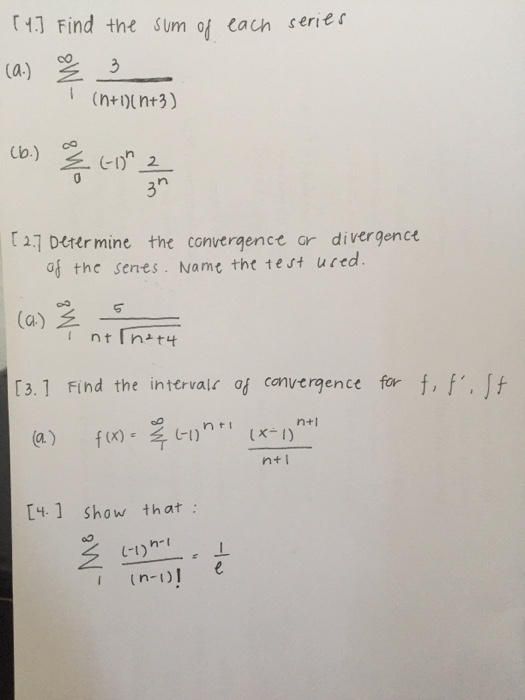 [1.] Find the sum of each series
(a.) ∞ Σ 1 3 / (n+1)(n+3)
(b.) ∞ Σ 0 (-1)^n 2 / 3^n
[2.] Determine the convergence or divergence
of the series. Name the test used.
(a.) ∞ Σ 1 5 / n+√n²+4
[3.] Find the intervals of convergence for f, f', ∫f
(a.) f(x) = ∞ Σ 1 (-1)^n+1 (x-1)^n+1 / n+1
[4.] Show that :
∞ Σ 1 (-1)^n-1 / (n-1)! = 1 / e